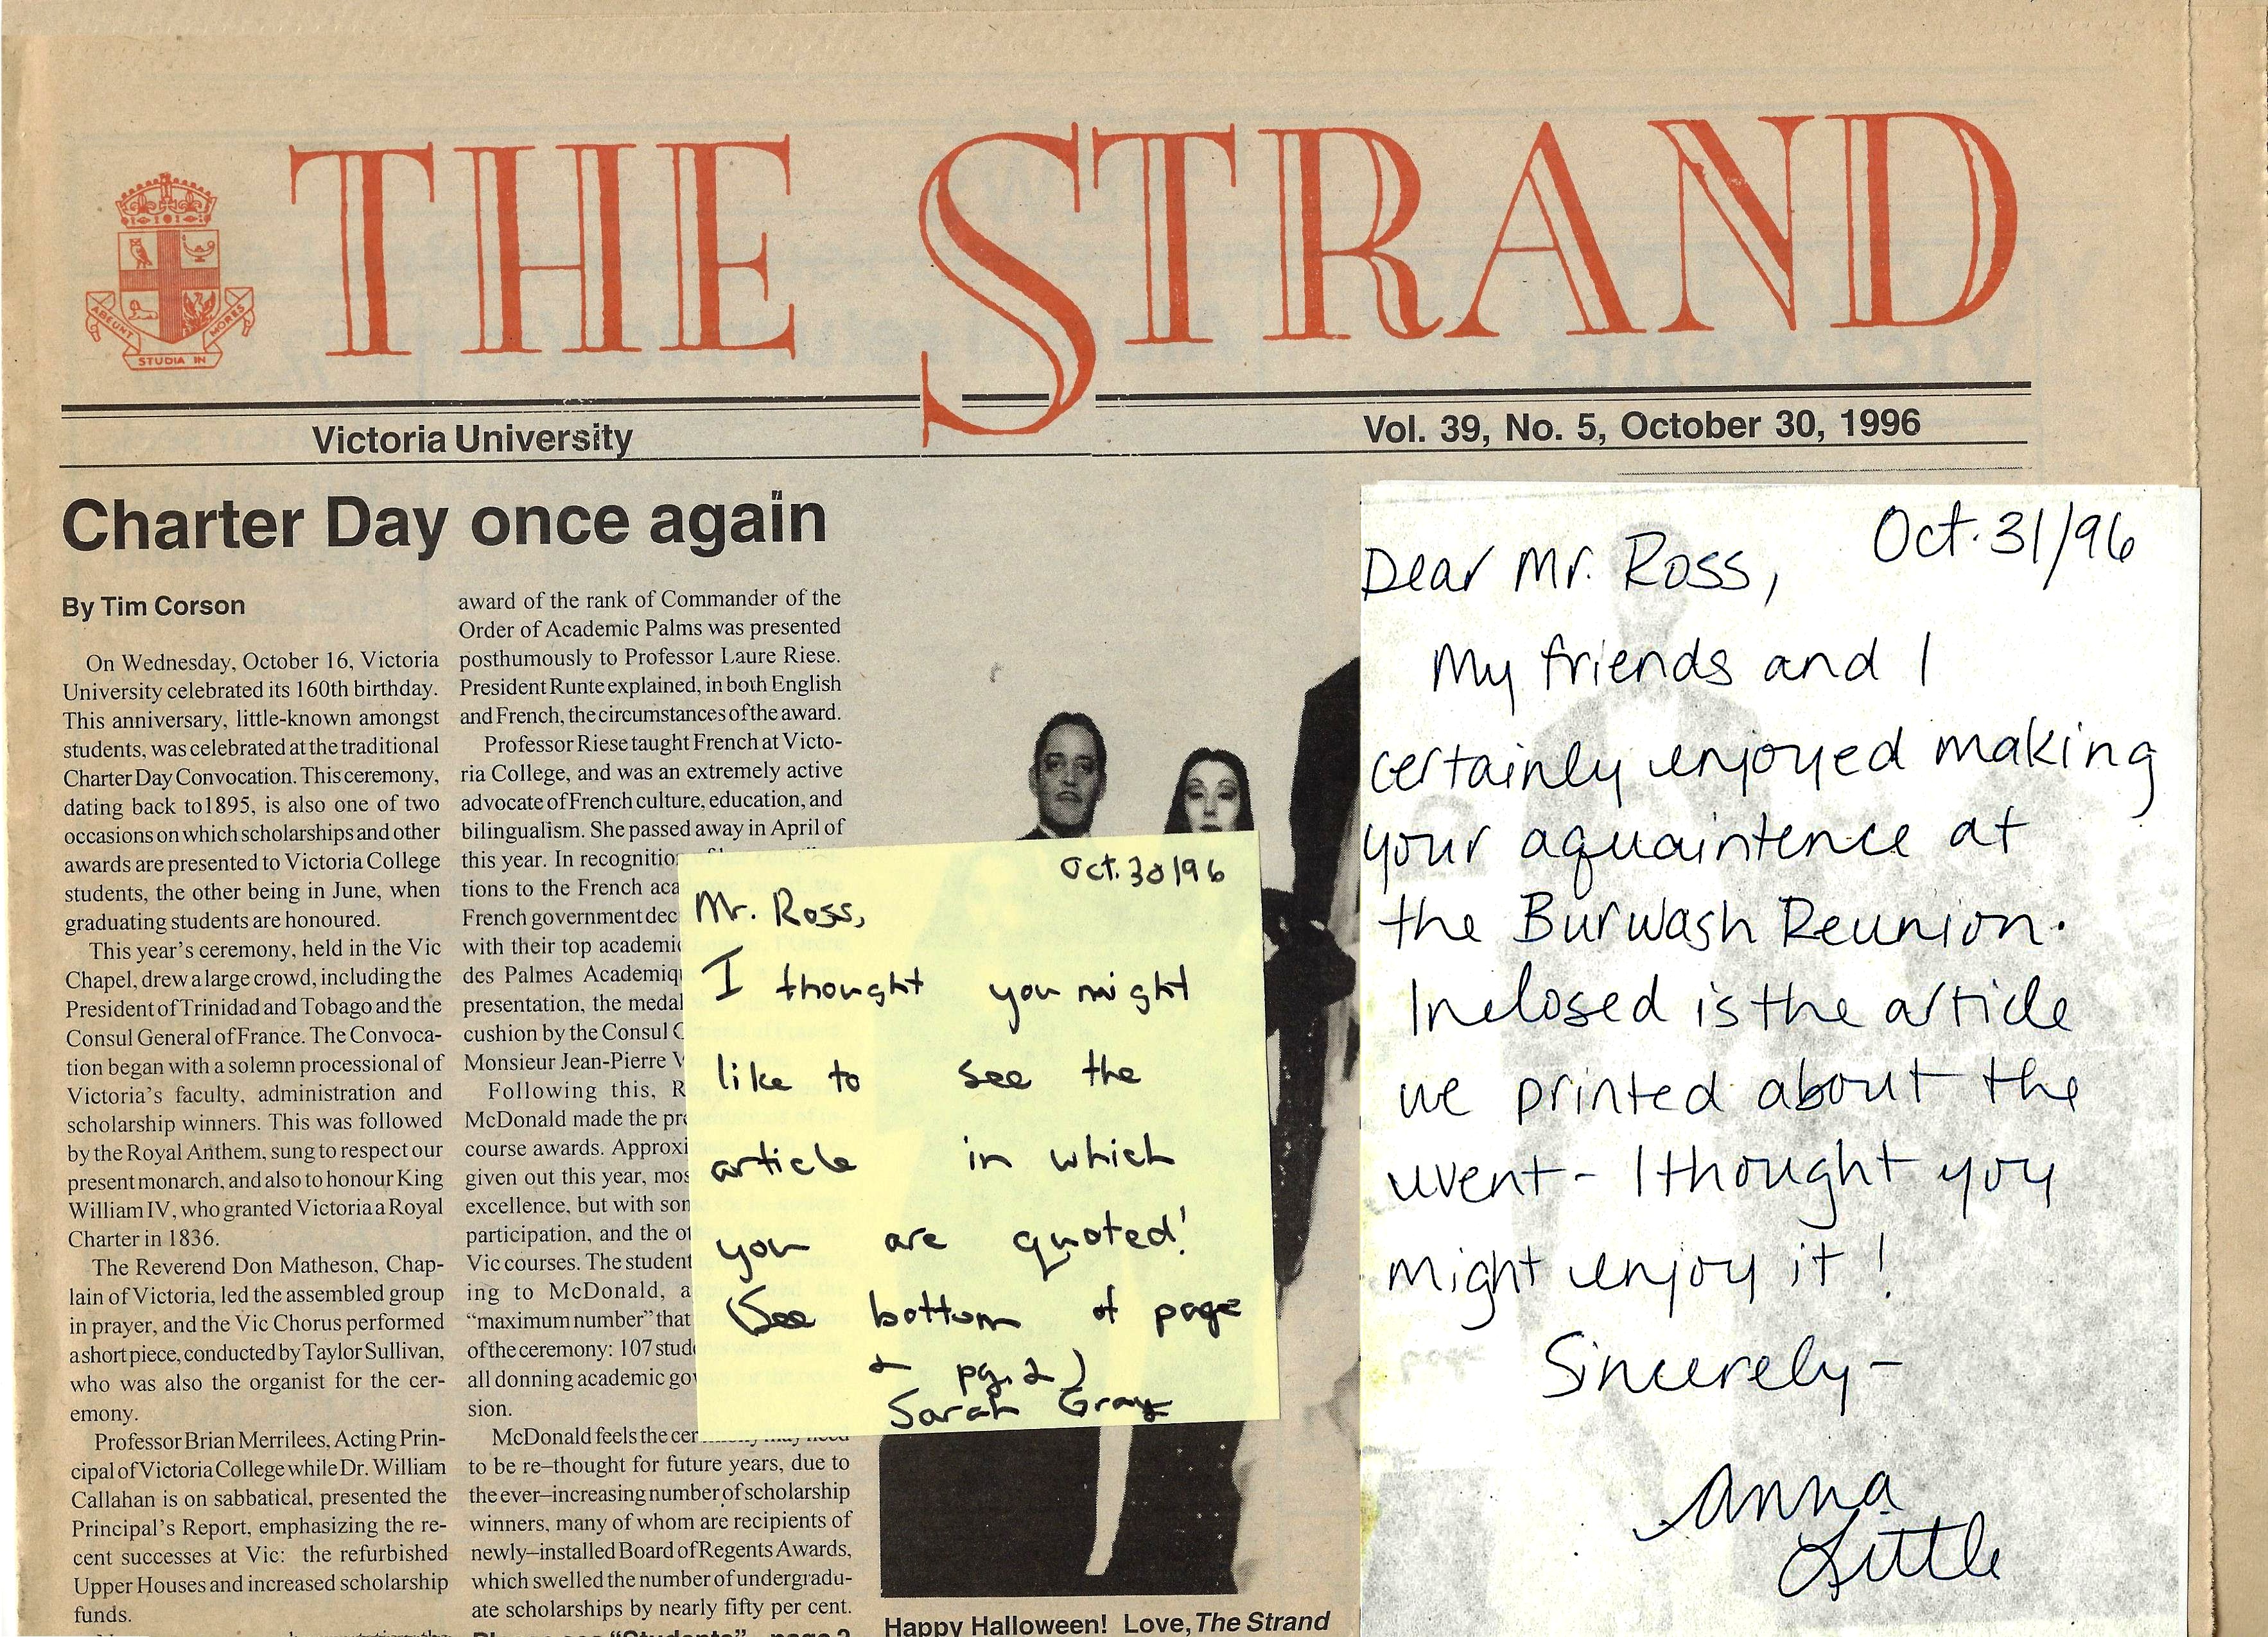 THE STRAND
ABEUNT
MORES
STUDIA IN
Victoria University
Vol. 39, No. 5, October 30, 1996
Charter Day once again
By Tim Corson
On Wednesday, October 16, Victoria
University celebrated its 160th birthday.
This anniversary, little-known amongst
students, was celebrated at the traditional
Charter Day Convocation. This ceremony,
dating back to1895, is also one of two
occasions on which scholarships and other
awards are presented to Victoria College
students, the other being in June, when
graduating students are honoured.
This year's ceremony, held in the Vic
Chapel, drew a large crowd, including the
President of Trinidad and Tobago and the
Consul General of France. The Convoca-
tion began with a solemn processional of
Victoria's faculty, administration and
scholarship winners. This was followed
by the Royal Anthem, sung to respect our
present monarch, and also to honour King
William IV, who granted Victoria a Royal
Charter in 1836.
The Reverend Don Matheson, Chap-
lain of Victoria, led the assembled group
in prayer, and the Vic Chorus performed
a short piece, conducted by Taylor Sullivan,
who was also the organist for the cer-
emony.
Professor Brian Merrilees, Acting Prin-
cipal of Victoria College while Dr. William
Callahan is on sabbatical, presented the
Principal's Report, emphasizing the re-
cent successes at Vic: the refurbished
Upper Houses and increased scholarship
funds.
award of the rank of Commander of the
Order of Academic Palms was presented
posthumously to Professor Laure Riese.
President Runte explained, in both English
and French, the circumstances of the award.
Professor Riese taught French at Victo-
ria College, and was an extremely active
advocate of French culture, education, and
bilingualism. She passed away in April of
this year. In recognition
tions to the French aca
French government dec
with their top academic
des Palmes Academiqu
presentation, the medal
cushion by the Consul
Monsieur Jean-Pierre V
Following this, R
McDonald made the pre
course awards. Approxi
given out this year, mos
excellence, but with som
participation, and the ot
Vic courses. The student
ing to McDonald, a
"maximum number" that
of the ceremony: 107 stud
all donning academic gow
sion.
McDonald feels the cer may need
to be re–thought for future years, due to
the ever–increasing number of scholarship
winners, many of whom are recipients of
newly–installed Board of Regents Awards,
which swelled the number of undergradu-
ate scholarships by nearly fifty per cent.
Please see "Students", page 2
Oct. 30/96
Mr. Ross,
I thought you might
like to see the
article in which
you are quoted!
(See bottom of page
& pg. 2)
Sarah Gray
Happy Halloween! Love, The Strand
Oct. 31/96
Dear Mr. Ross,
My friends and I
certainly enjoyed making
your aquaintence at
the Burwash Reunion.
Inclosed is the article
we printed about the
event - I thought you
might enjoy it!
Sincerely -
Anna
Little